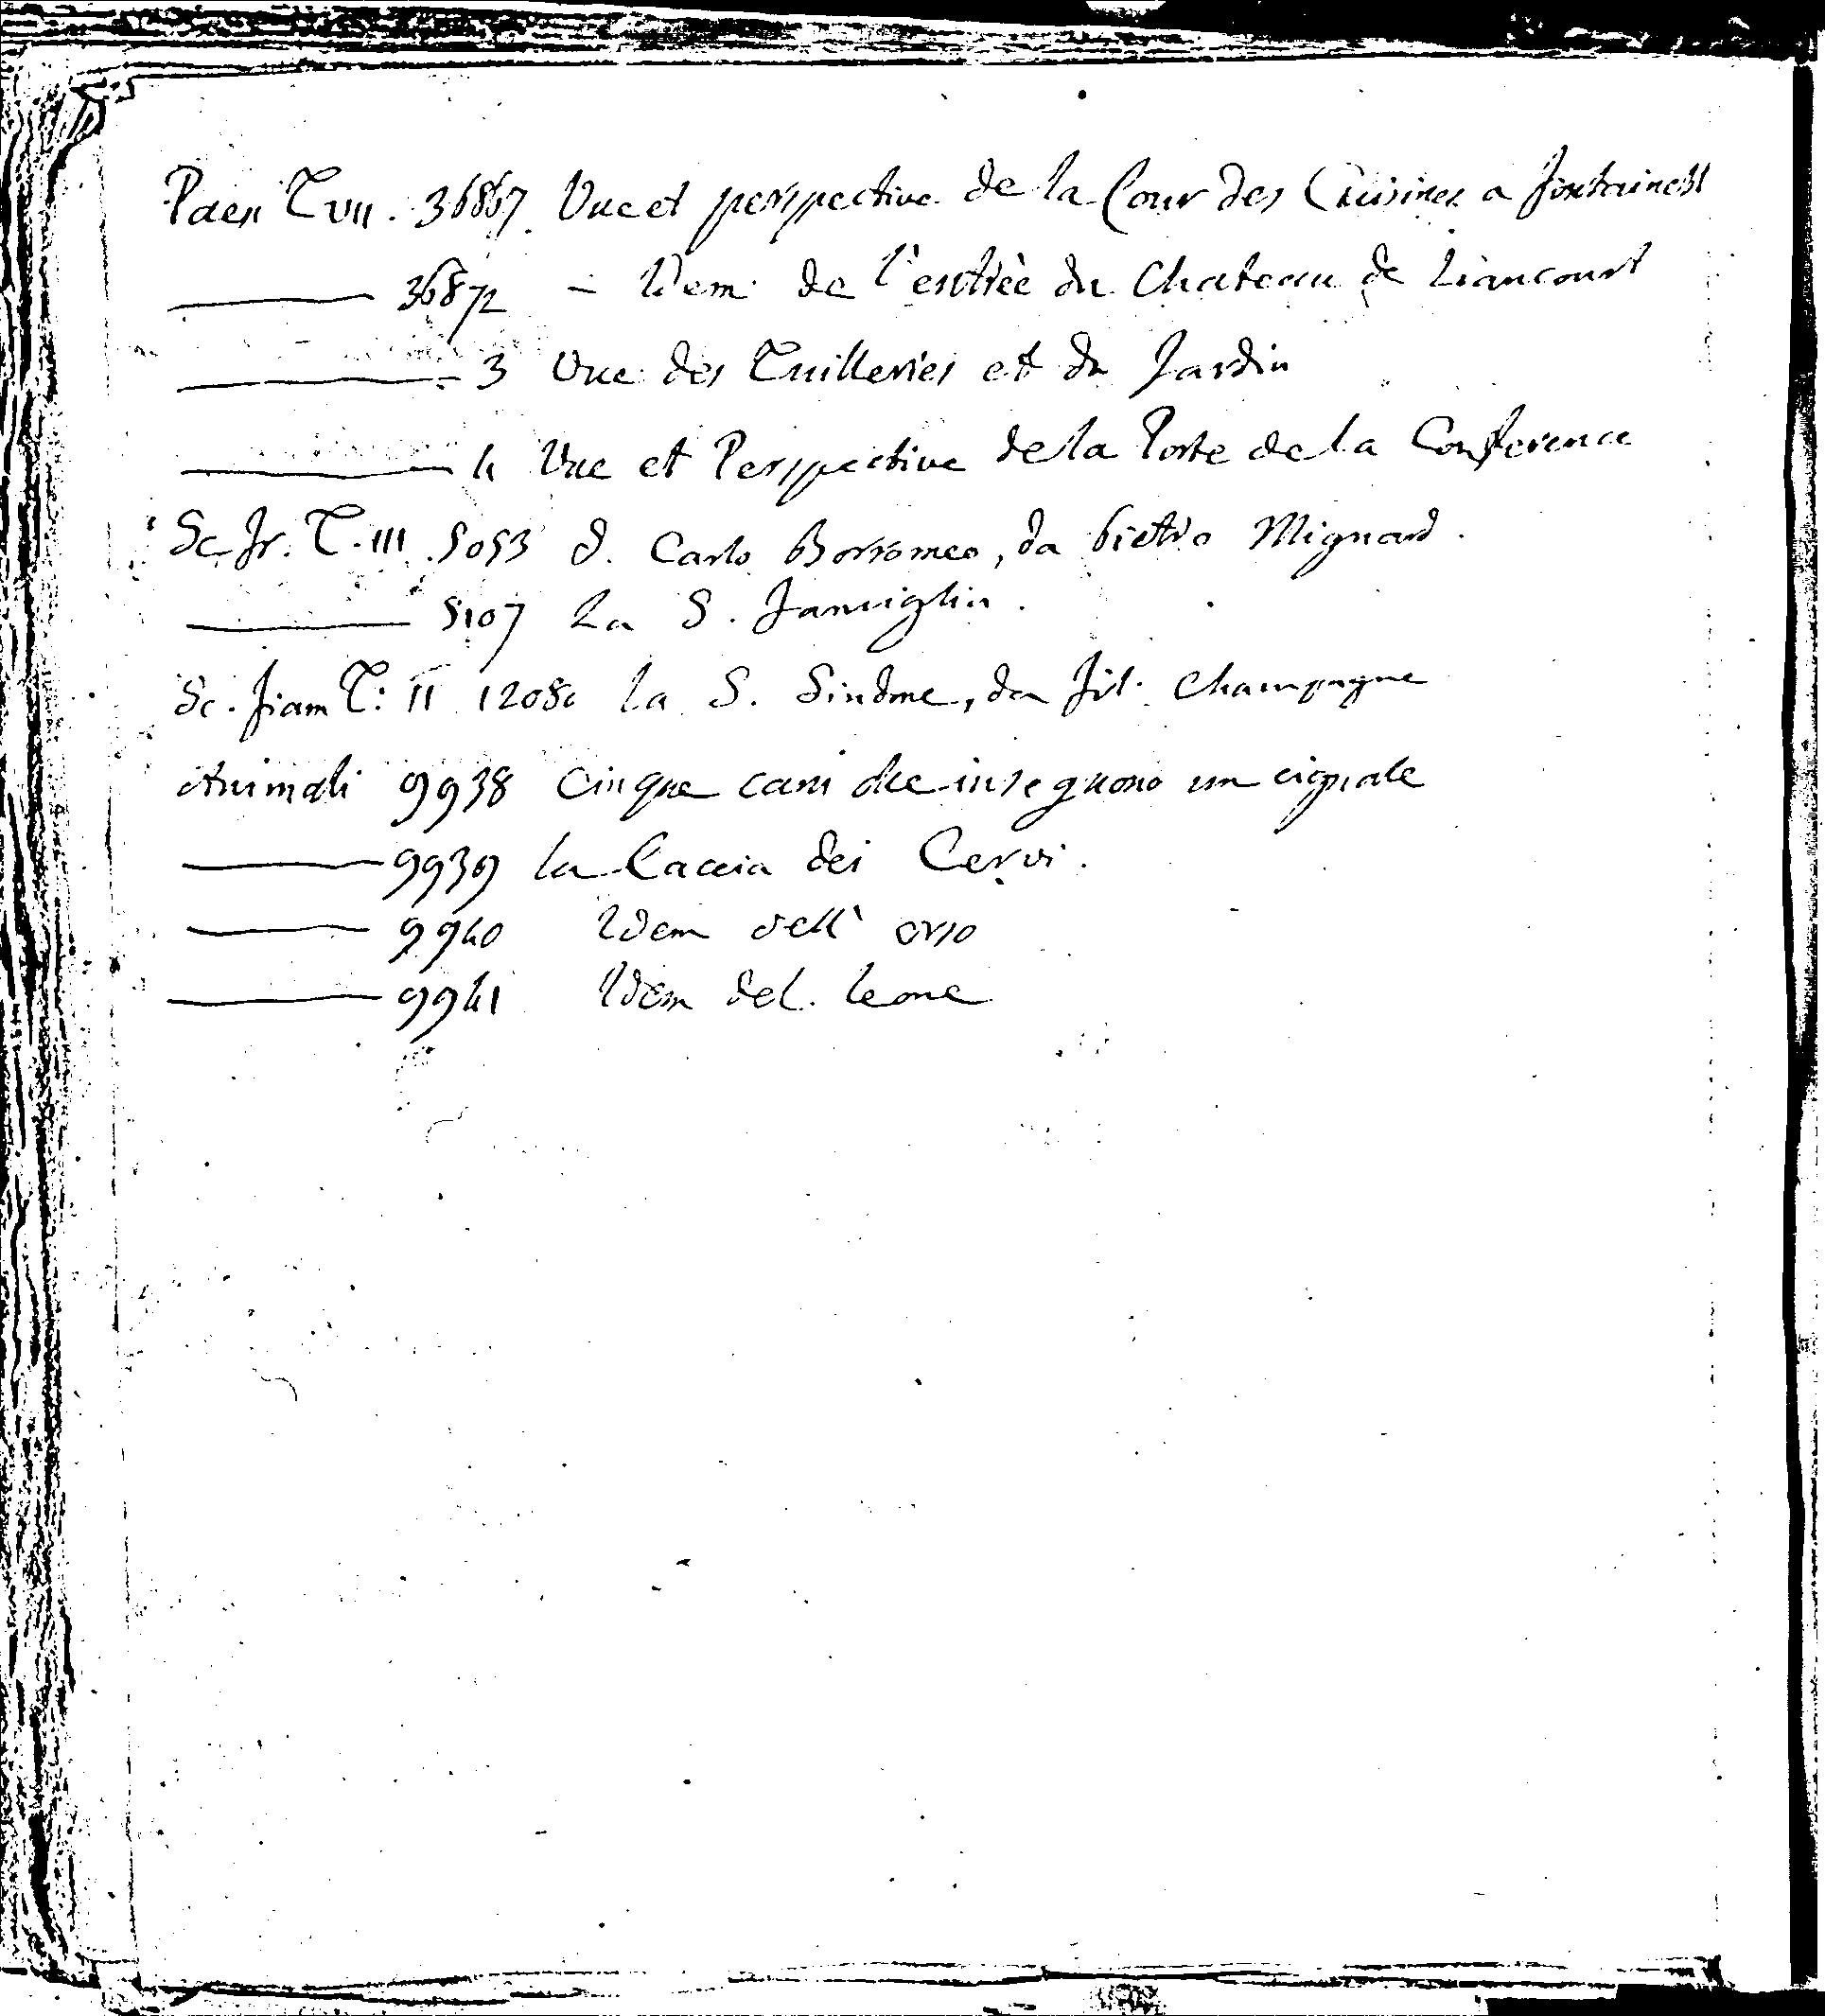 Paes T VII. 36867 Vue et perspective de la Cour des Cuisines a fontainebl
36872 – Idem de l'entrèe du Chateau de Liancourt
3 Vue des Tuilleries et du Jardin
4 Vue et Perspective de la Porte de la Conference
Sc. fr. T. III. 5053 S. Carlo Borromeo, da Pietro Mignard.
5107 La S. famiglia.
Sc. fiam T: II 12080 la S. Sindone, da fil. Champagne
Animali 9938 Cinque cani che inseguono un cignale
9939 la Caccia dei Cervi.
9940 Idem dell' orso
9941 Idem del leone